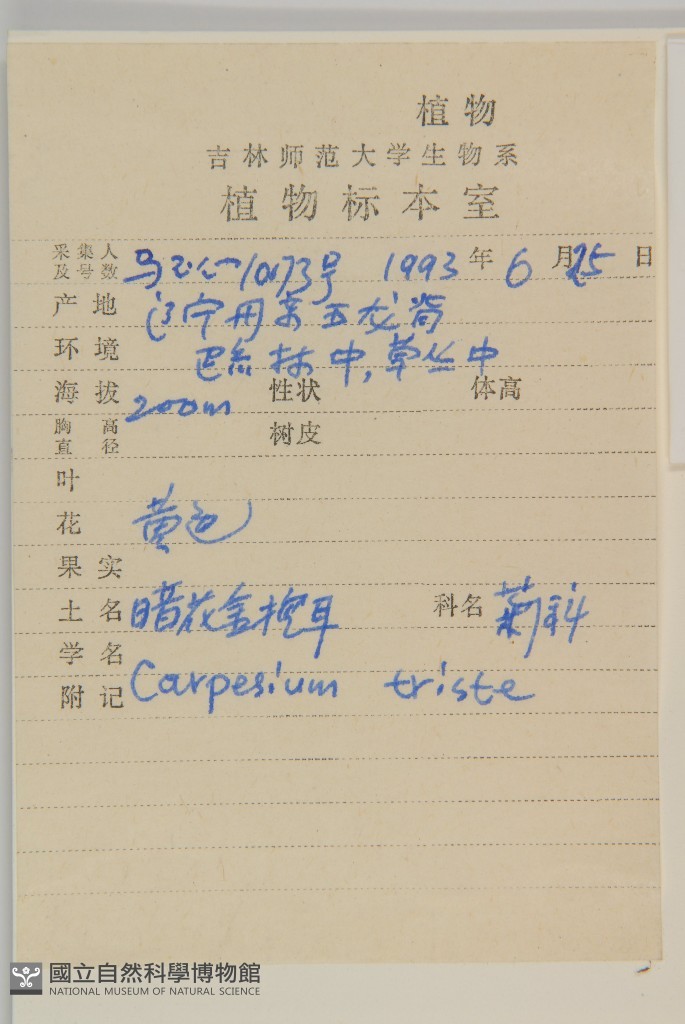 植物
吉林师范大学生物系
植物标本室
采集人及号数 10173号 1993年6月25日
产地 辽宁丹东五龙背
环境 林中,草丛中
海拔 200m 性状 体高
胸高直径 树皮
叶
花 黄色
果实
土名 暗花金挖耳 科名 菊科
学名 Carpesium triste
附记
國立自然科學博物館
NATIONAL MUSEUM OF NATURAL SCIENCE